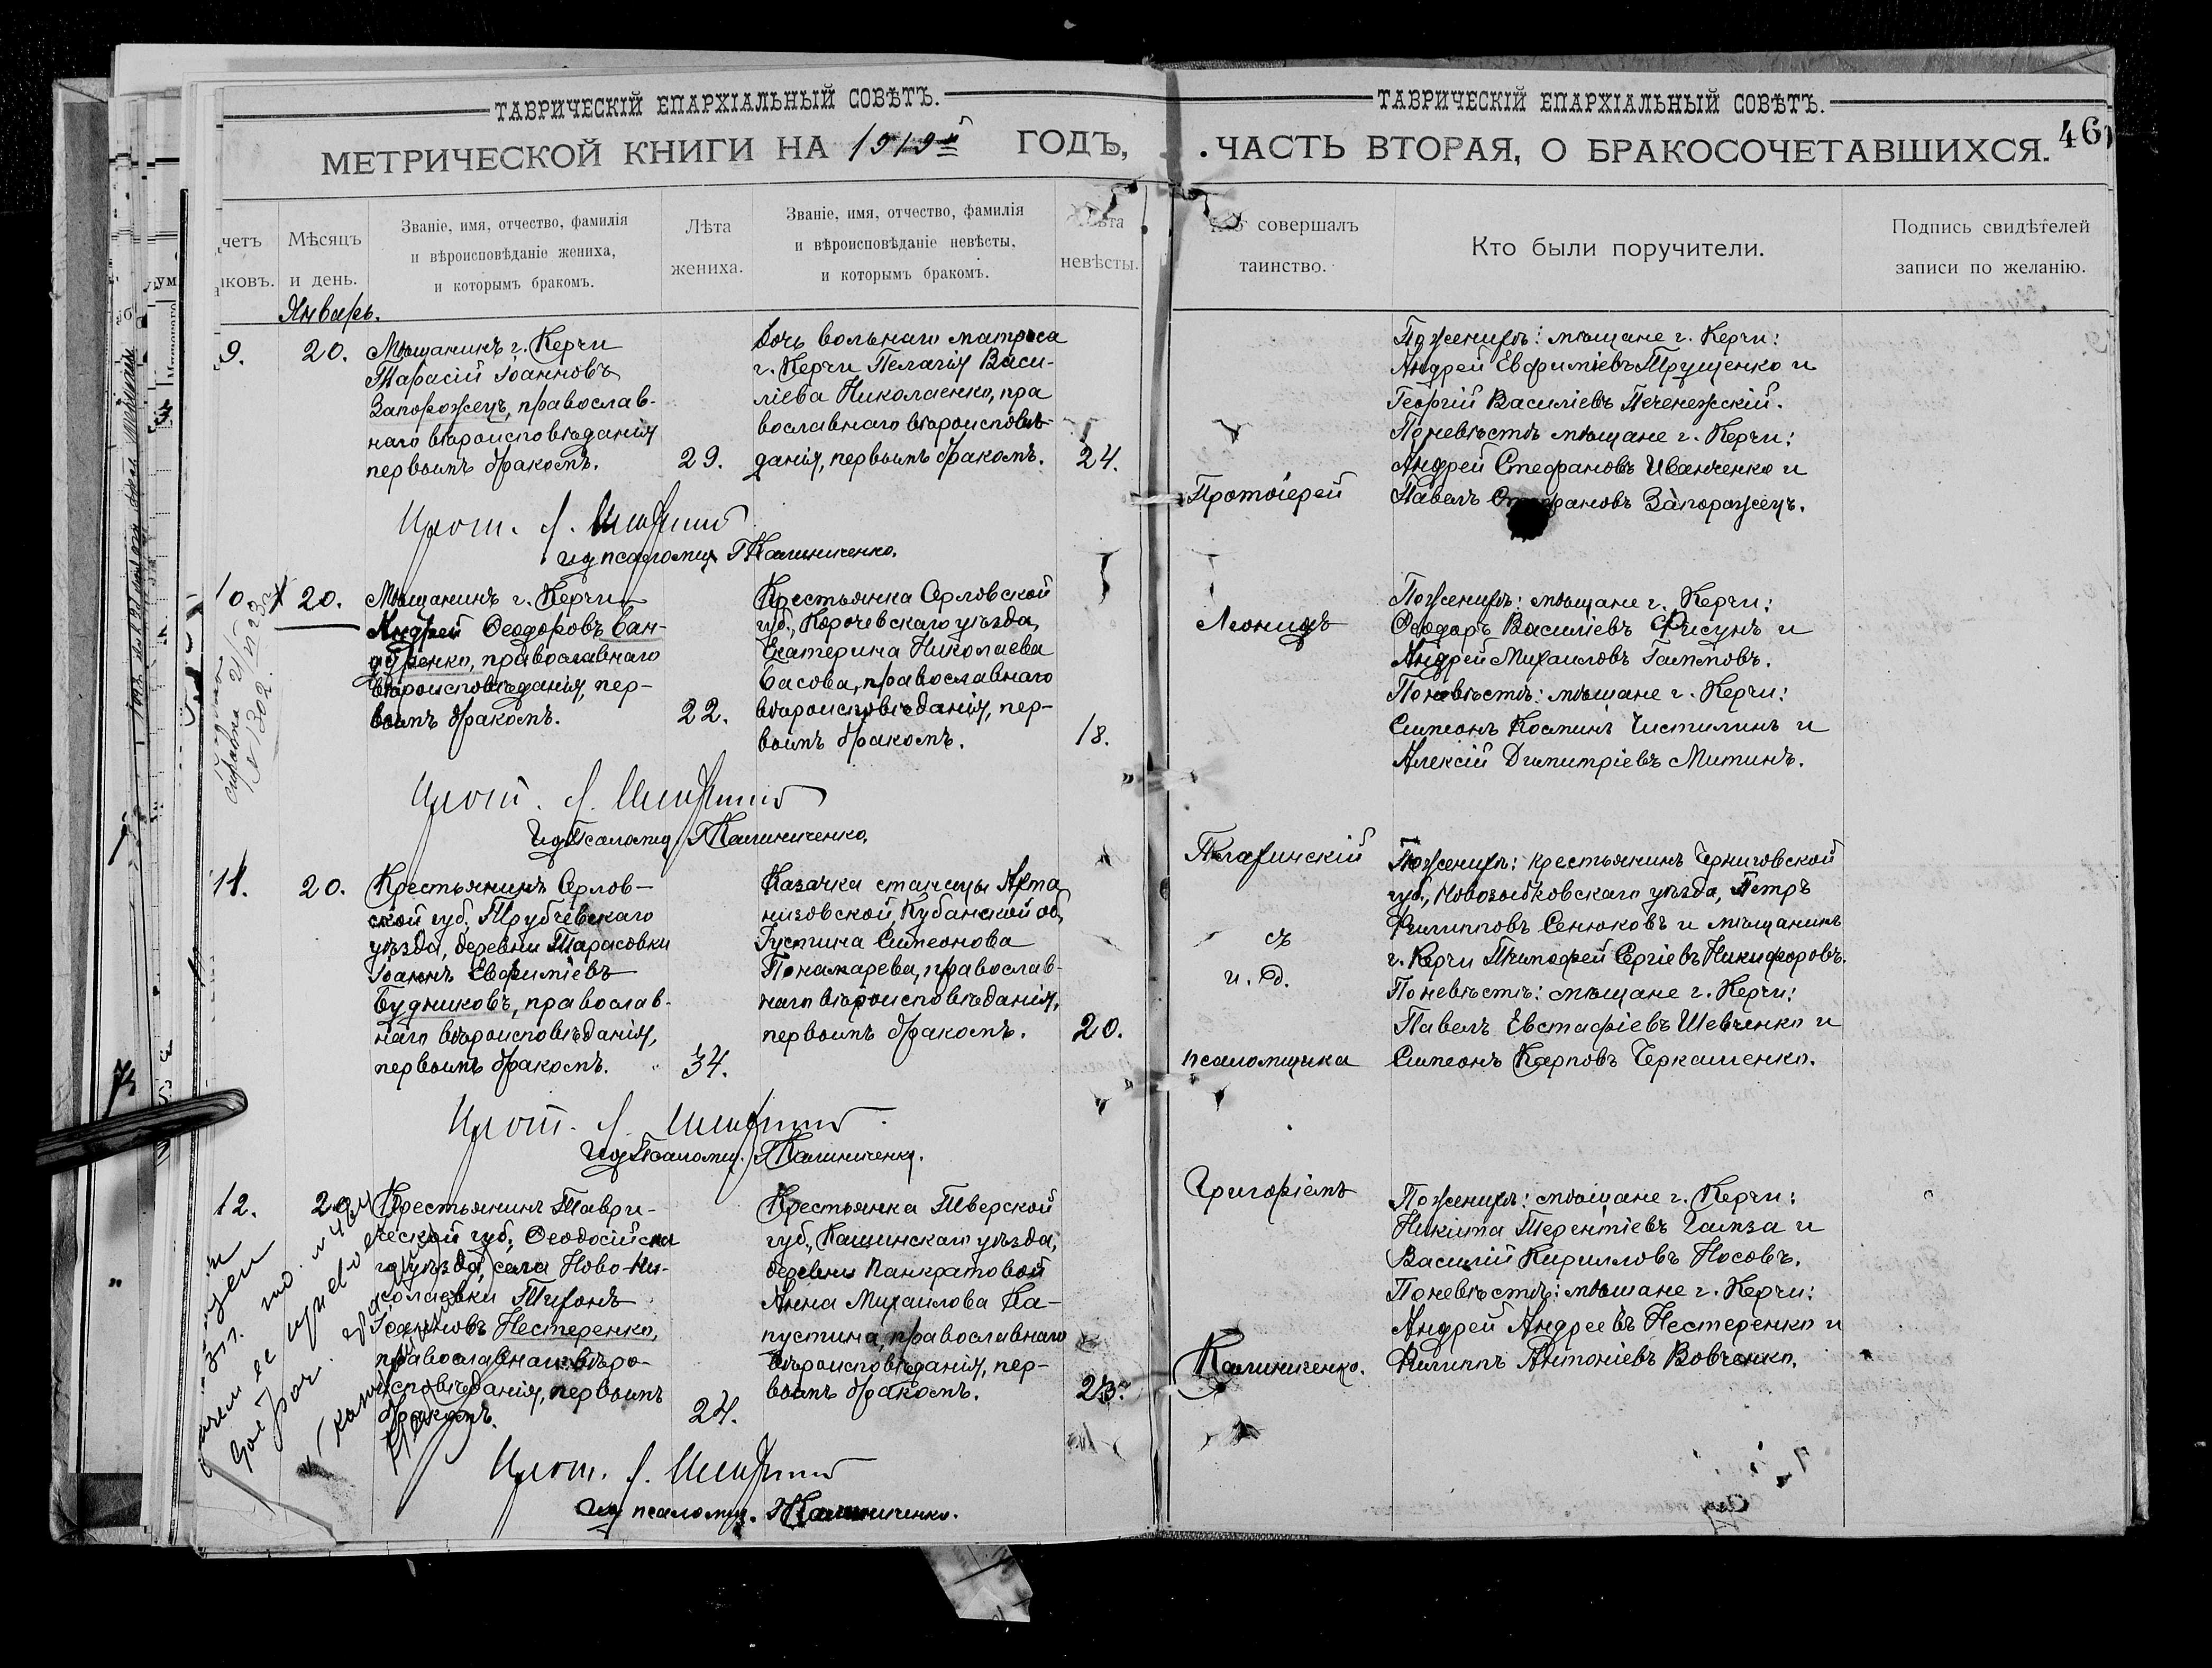 ТАВРИЧЕСКІЙ ЕПАРХІАЛЬНЫЙ СОВѢТЪ.
МЕТРИЧЕСКОЙ КНИГИ НА 1919й ГОДЪ,
четъ
ковъ.
Мѣсяцъ
и день.
Званіе, имя, отчество, фамилія
и вѣроисповѣданіе жениха,
и которымъ бракомъ.
Лѣта
жениха.
Званіе, имя, отчество, фамилія
и вѣроисповѣданіе невѣсты,
и которымъ бракомъ.
Лѣта
невѣсты.
Январь.
9.
20.
Мѣщанинъ г. Керчи
Тарасій Іоанновъ
Запорожецъ, православ-
наго вѣроисповѣданія
первымъ бракомъ.
29.
Дочь вольнаго матроса
г. Керчи Пелагія Васи-
ліева Николаенко, пра
вославнаго вѣроисповѣ-
данія, первымъ бракомъ.
24.
Прот. Л.
и д псаломщ. Г Калиниченко.
10
20.
Мѣщанинъ г. Керчи
Андрей Ѳеодоровъ Бан-
дуренко, православнаго
вѣроисповѣданія, пер-
вымъ бракомъ.
22.
Крестьянка Орловской
губ., Корочевскаго уѣзда,
Екатерина Николаева
Басова, православнаго
вѣроисповѣданія, пер-
вымъ бракомъ.
18.
справка
№ 1302.
Прот. Л.
и д Псаломщ. Г Калиниченко.
11.
20.
Крестьянинъ Орлов-
ской губ. Трубчевскаго
уѣзда, деревни Тарасовки
Іоаннъ Евфиміевъ
Будниковъ, православ-
наго вѣроисповѣданія,
первымъ бракомъ.
34.
Казачка станицы Ахта
низовской, Кубанской об,
Іустина Симеонова
Понамарева, православ-
наго вѣроисповѣданія,
первымъ бракомъ.
20.
Прот. Л.
и д Псаломщ. Г Калиниченко.
12.
20
Крестьянинъ Таври-
ческой губ., Ѳеодосійска
го уѣзда, села Ново-Ни-
колаевки Тихонъ
Іоанновъ Нестеренко,
православнаго вѣро-
исповѣданія, первымъ
бракомъ.
24.
Крестьянка Тверской
губ., Кашинскаго уѣзда,
деревни Панкратовой
Анна Михаилова Ка-
пустина, православнаго
вѣроисповѣданія, пер-
вымъ бракомъ.
23.
Прот. Л.
и д псаломщ. Г Калиниченко.
ТАВРИЧЕСКІЙ ЕПАРХІАЛЬНЫЙ СОВѢТЪ.
ЧАСТЬ ВТОРАЯ, О БРАКОСОЧЕТАВШИХСЯ.
46
совершалъ
таинство.
Кто были поручители.
Подпись свидѣтелей
записи по желанію.
Протоіерей
Леонидъ
съ
и. д.
псаломщика
Григоріемъ
Калиниченко.
По женихѣ: мѣщане г. Керчи:
Андрей Евфиміевъ Трущенко и
Георгій Василіевъ Печенежскій.
По невѣстѣ мѣщане г. Керчи:
Андрей Стефановъ Иванченко и
Павелъ Стефановъ Запорожецъ.
По женихѣ: мѣщане г. Керчи:
Ѳеодоръ Василіевъ Фисунъ и
Андрей Михаиловъ
По невѣстѣ: мѣщане г. Керчи:
Симеонъ Косминъ Чистилинъ и
Алексій Димитріевъ Митинъ.
По женихѣ: крестьянинъ Черниговской
губ., Новозыбковскаго уѣзда, Петръ
Филипповъ Сенюковъ и мѣщанинъ
г. Керчи Тимофей Сергіевъ Никифоровъ.
По невѣстѣ: мѣщане г. Керчи:
Павелъ Евстафіевъ Шевченко и
Симеонъ Карповъ Черкашенко.
По женихѣ: мѣщане г. Керчи:
Никита Терентіевъ Гамза и
Василій Кирилловъ Носовъ.
По невѣстѣ: мѣщане г. Керчи:
Андрей Андреевъ Нестеренко и
Филиппъ Антоніевъ Вовченко.